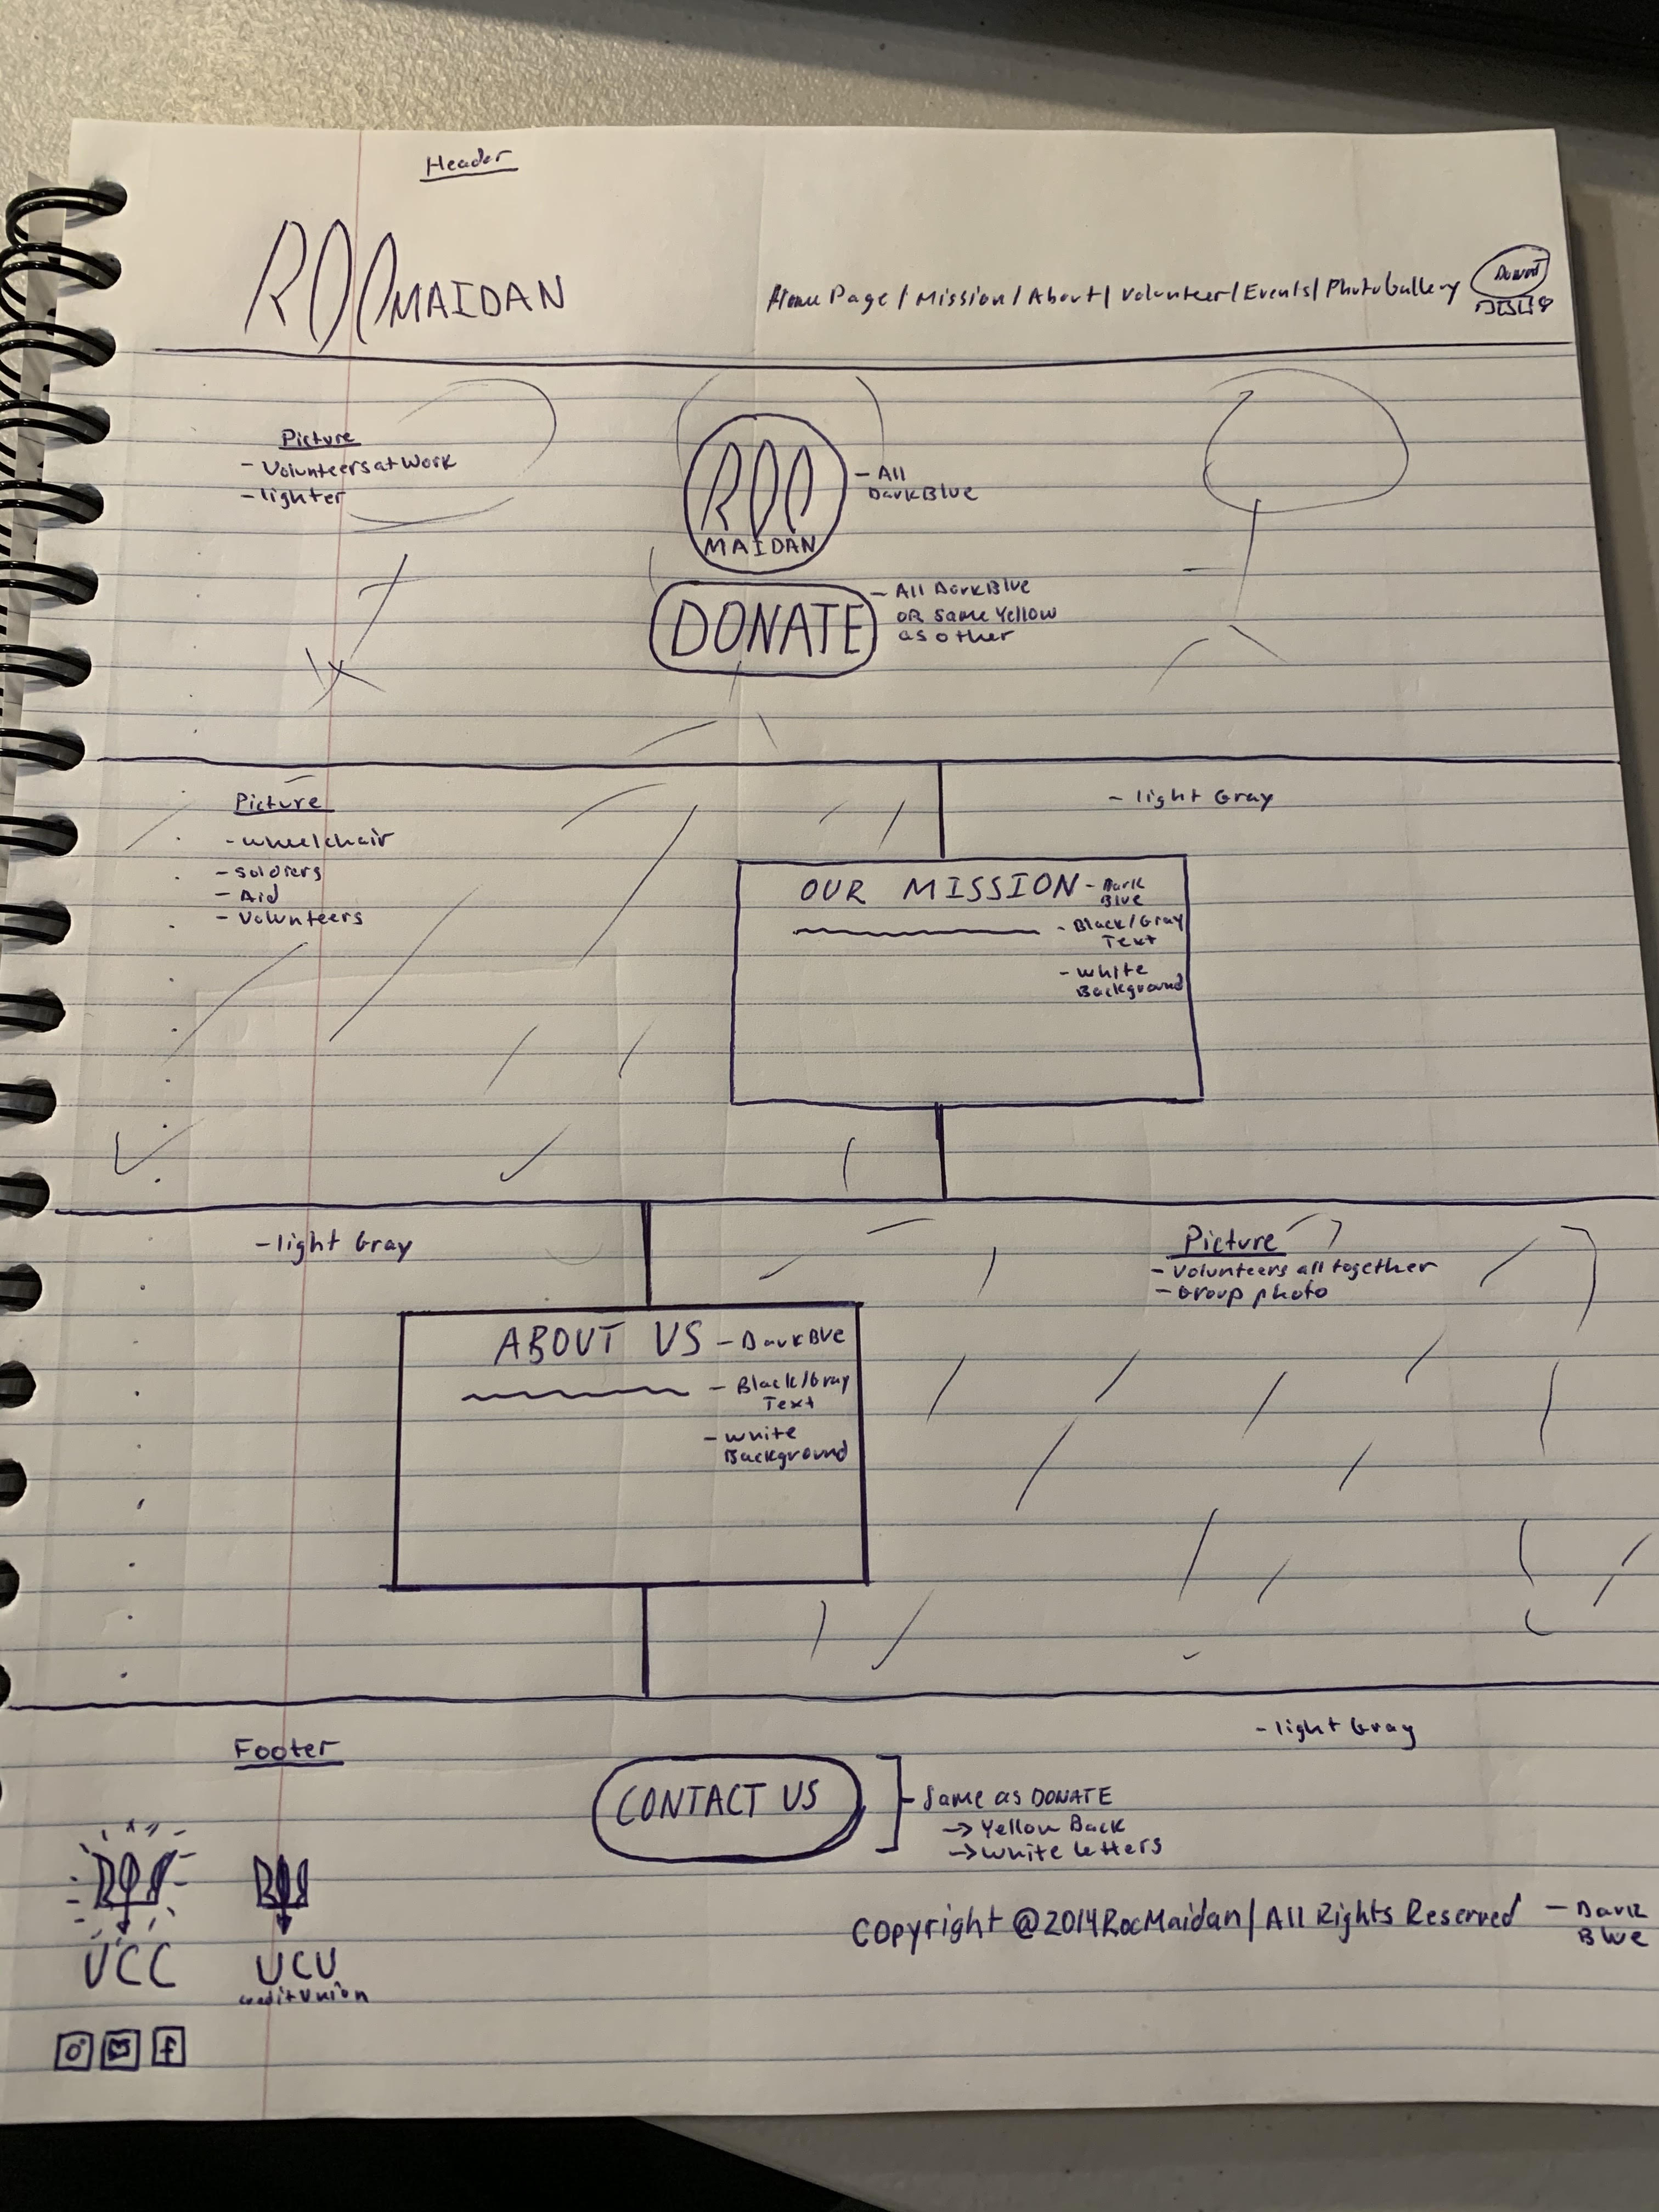 Header
ROC MAIDAN
HomePage / Mission / About / Volunteer / Events / PhotoGallery
Picture
- Volunteers at Work
- lighter
ROC
MAIDAN
- All
DarkBlue
DONATE
- All DarkBlue
OR Same Yellow
as other
Picture
- wheelchair
- soldiers
- Aid
- Volunteers
- light Gray
OUR MISSION - Dark
Blue
- Black/Gray
Text
- White
Background
- light Gray
ABOUT US - DarkBlue
- Black/Gray
Text
- White
Background
Picture
- Volunteers all together
- Group photo
Footer
- light Gray
CONTACT US
Same as DONATE
→ Yellow Back
→ White letters
UCC
UCU
credit Union
Copyright @2014 RocMaidan / All Rights Reserved - Dark
Blue
f